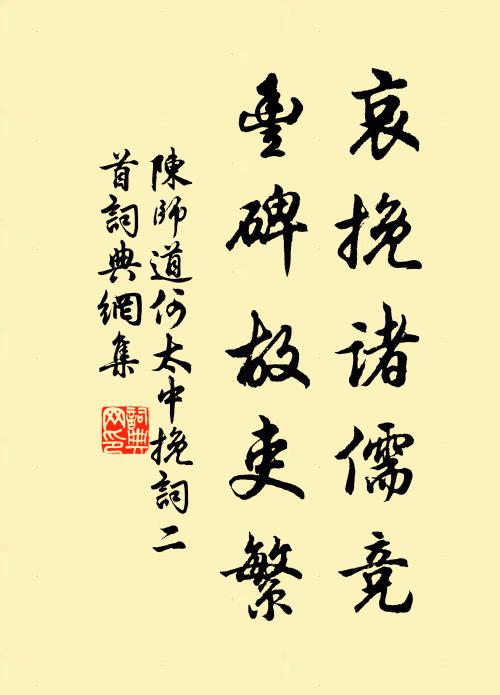 哀挽諸儒竞
豊碑故吏繁
陳師道何太中挽詞二
首詞典網集
詞典
网印